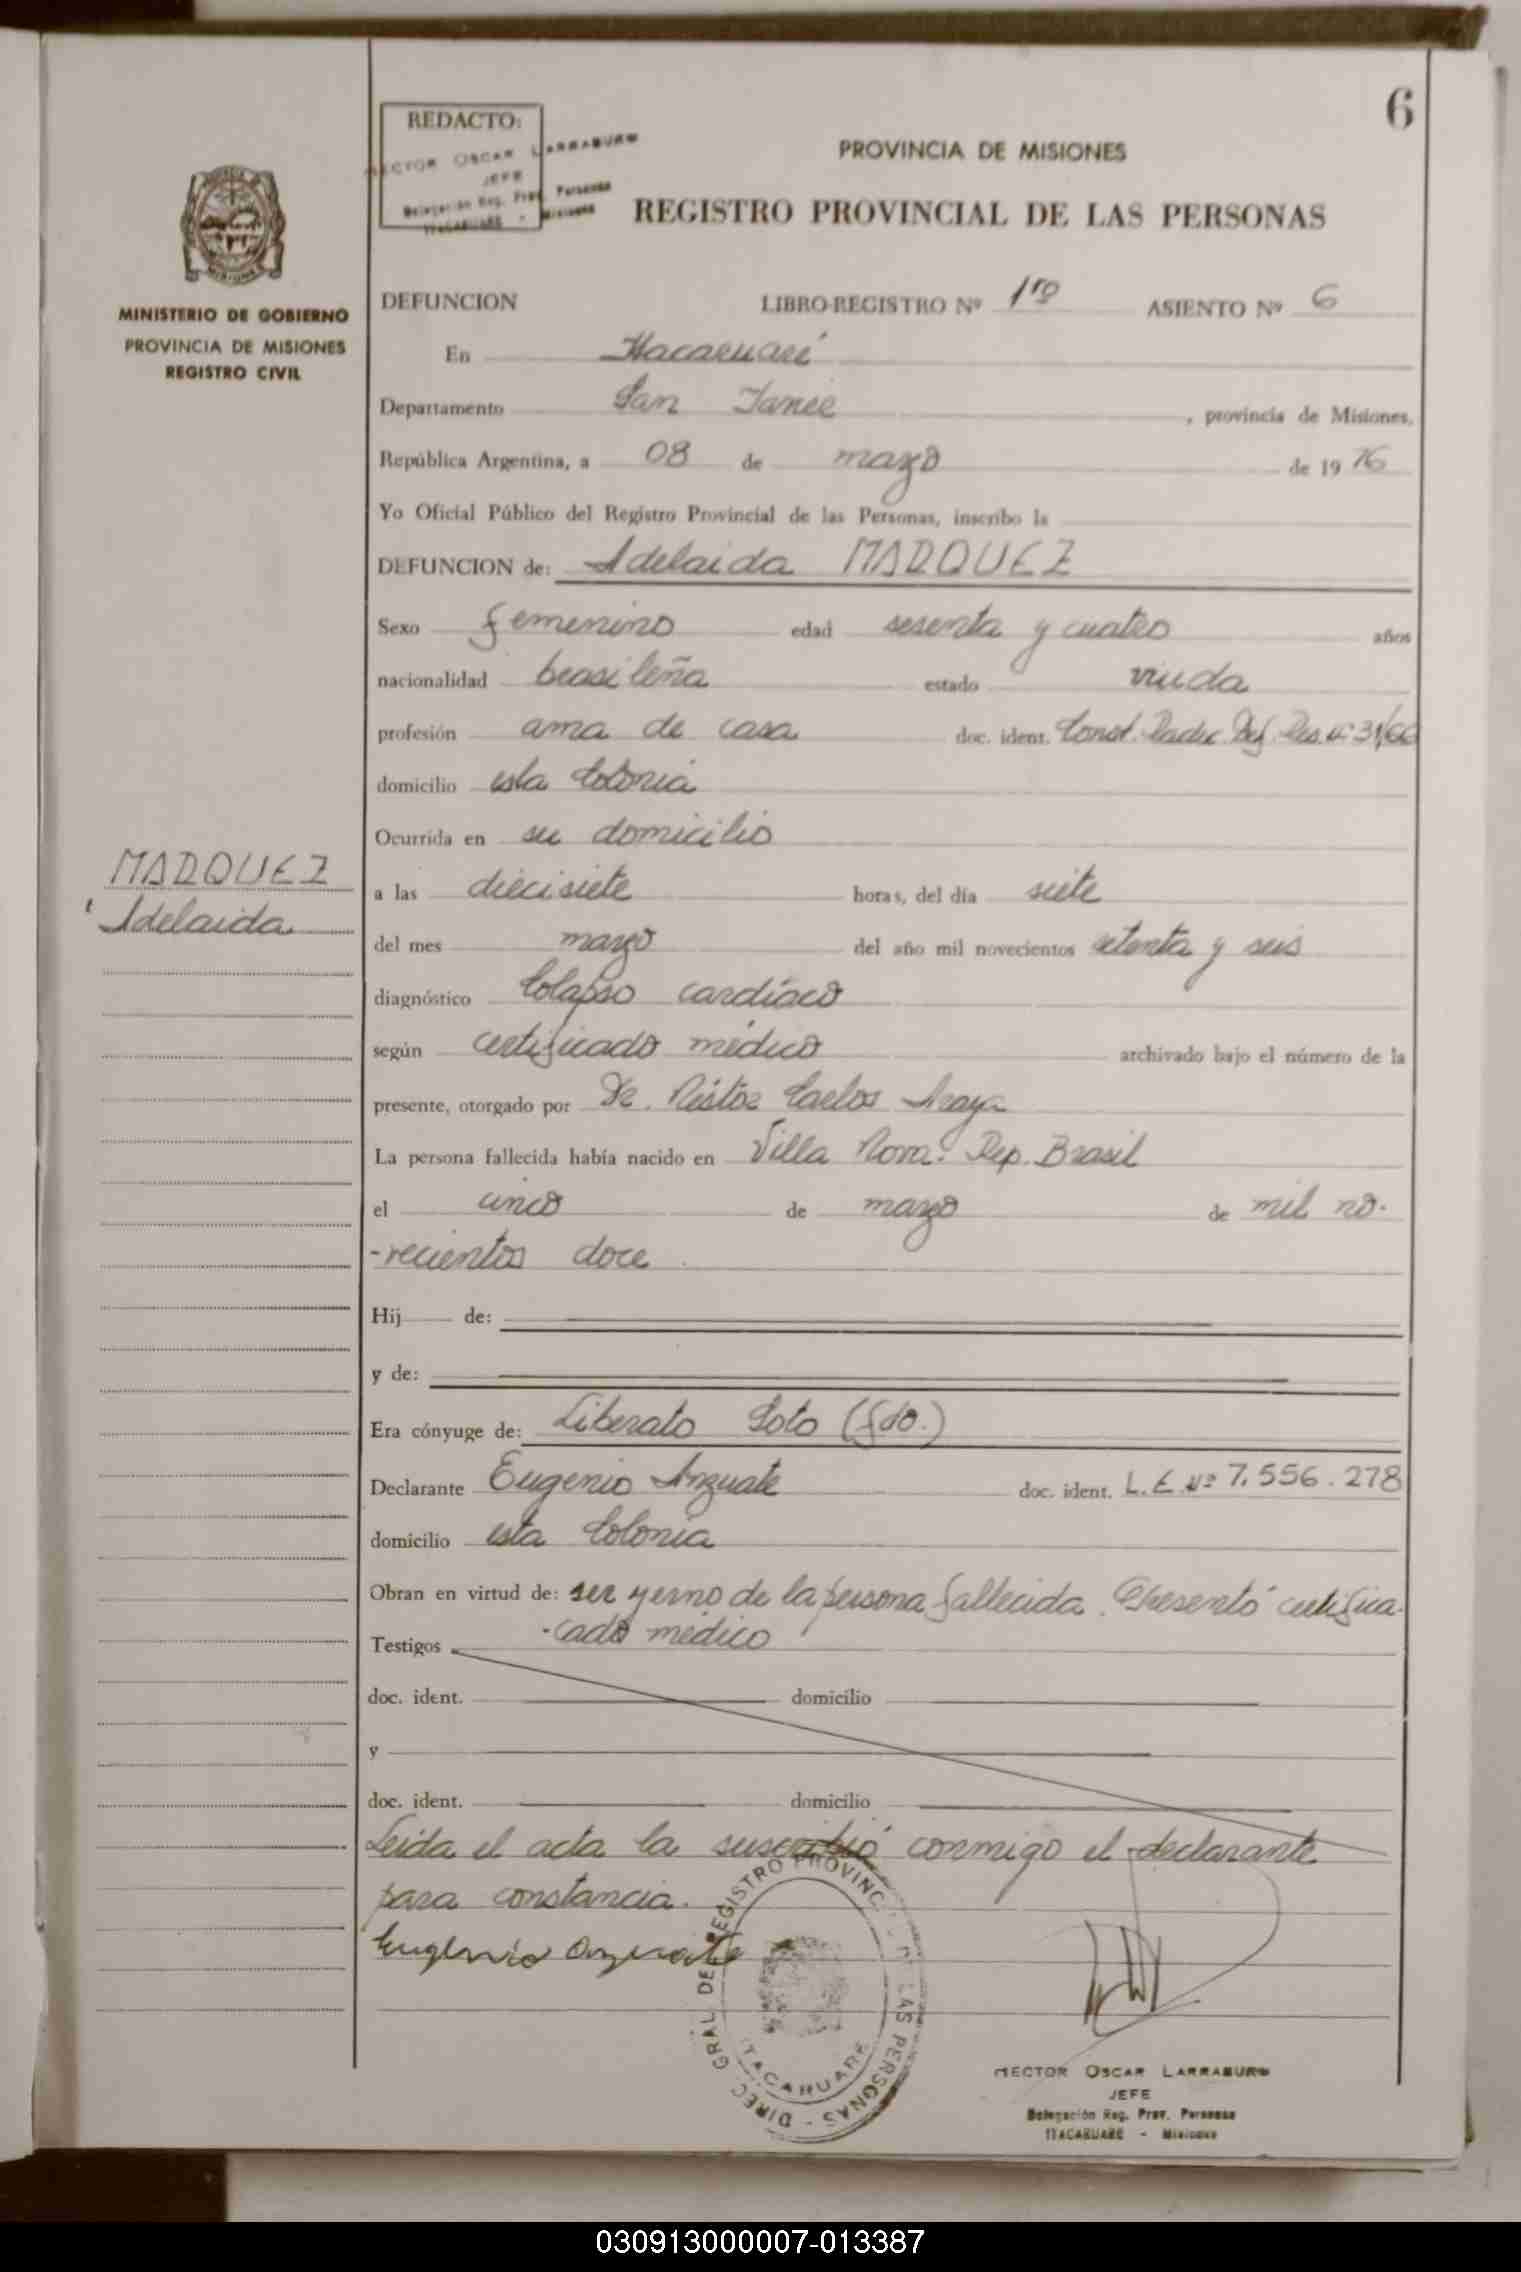 6
REDACTO:
HECTOR OSCAR LARRABURU
JEFE
Delegación Reg. Prov. Personas
ITACARUARE - Misiones
PROVINCIA DE MISIONES
REGISTRO PROVINCIAL DE LAS PERSONAS
MINISTERIO DE GOBIERNO
PROVINCIA DE MISIONES
REGISTRO CIVIL
DEFUNCION LIBRO-REGISTRO Nº 1ro ASIENTO Nº 6
En Itacaruaré
Departamento San Javier, provincia de Misiones,
República Argentina, a 08 de marzo de 19 76
Yo Oficial Público del Registro Provincial de las Personas, inscribo la
DEFUNCION de: Adelaida MARQUEZ
Sexo femenino edad sesenta y cuatro años
nacionalidad brasileña estado viuda
profesión ama de casa doc. ident. Const. Radic. Def. Res. nº 31/66
domicilio esta Colonia
Ocurrida en su domicilio
MARQUEZ
Adelaida
a las diecisiete horas, del día siete
del mes marzo del año mil novecientos setenta y seis
diagnóstico Colapso cardíaco
según certificado médico archivado bajo el número de la
presente, otorgado por Dr. Néstor Carlos Araya
La persona fallecida había nacido en Villa Nova. Rep. Brasil
el cinco de marzo de mil no-
-vecientos doce
Hij de:
y de:
Era cónyuge de: Liberato Soto (fdo.)
Declarante Eugenio Anzuate doc. ident. L.E. Nº 7.556.278
domicilio esta Colonia
Obran en virtud de: ser yerno de la persona fallecida. Presentó certifica-
Testigos -cado médico
doc. ident. domicilio
y
doc. ident. domicilio
Leída el acta la suscribió conmigo el declarante
para constancia.
Eugenio Anzuate
DIREC. GRAL. DE REGISTRO PROVINCIAL DE LAS PERSONAS -
ITACARUARE
HECTOR OSCAR LARRABURU
JEFE
Delegación Reg. Prov. Personas
ITACARUARE - Misiones
030913000007-013387